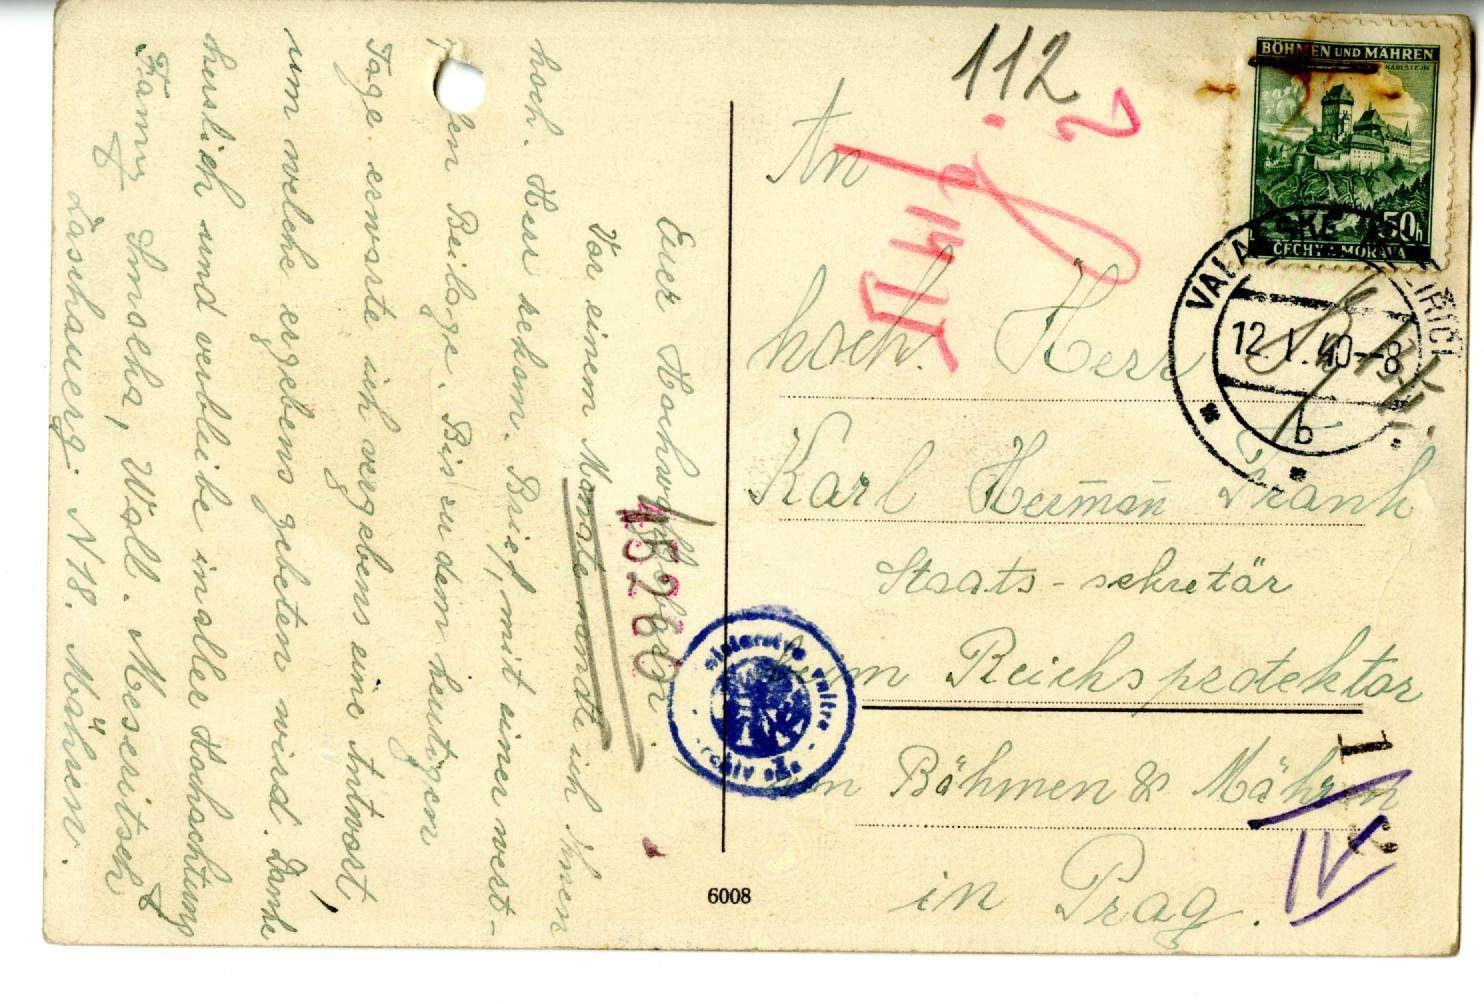 Euer Hochwohlgeboren.
Vor einem Monate sandte ich Ihnen
hoch. Herr rekom. Brief, mit einer wert-
Beilage. Bis zu dem heutigen
Tage erwarte ich vergebens eine Antwort,
um welche ergebens gebeten wird. Danke
herslich und verbleibe in aller Hochachtung
Fanny Smolka, Wall. Meseritsch
N 78. Mähren.
6008
112
An
hoch. Herr
Karl Herman̄ Frank
Staats-sekretär
beim Reichsprotektor
von Böhmen & Mähren
in Prag.
BÖHMEN UND MÄHREN
KARLSTEIN
50h
ČECHY A MORAVA
VALAŠSKÉ MEZIŘÍČÍ
12. I. 40 - 8
b
15260
1
2
IV